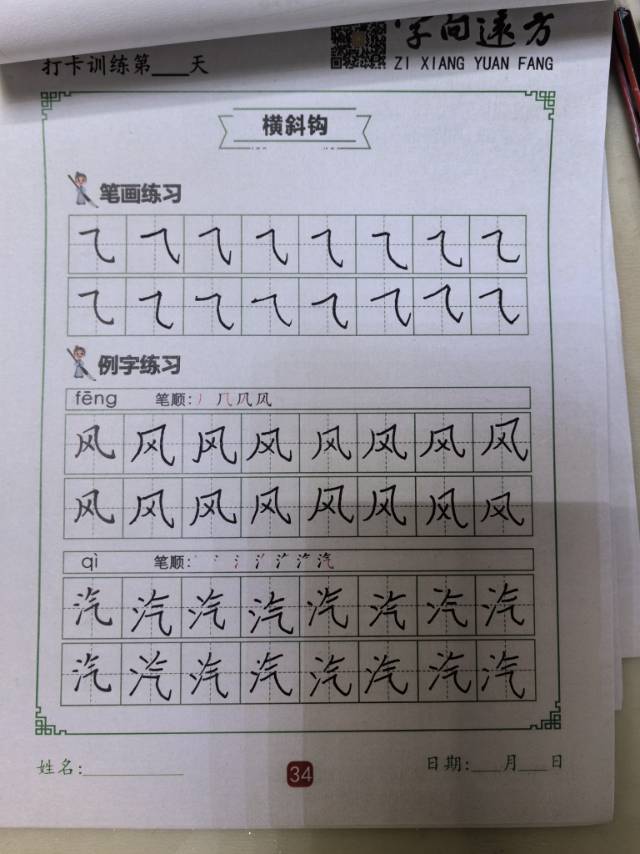 字向远方
打卡训练第___天
ZI XIANG YUAN FANG
横斜钩
笔画练习
乁 乁 乁 乁 乁 乁 乁 乁
乁 乁 乁 乁 乁 乁 乁 乁
例字练习
fēng 笔顺:
风 风 风 风 风 风 风 风
风 风 风 风 风 风 风 风
qì 笔顺:
汽 汽 汽 汽 汽 汽 汽 汽
汽 汽 汽 汽 汽 汽 汽 汽
姓名:__________
34
日期:___月___日